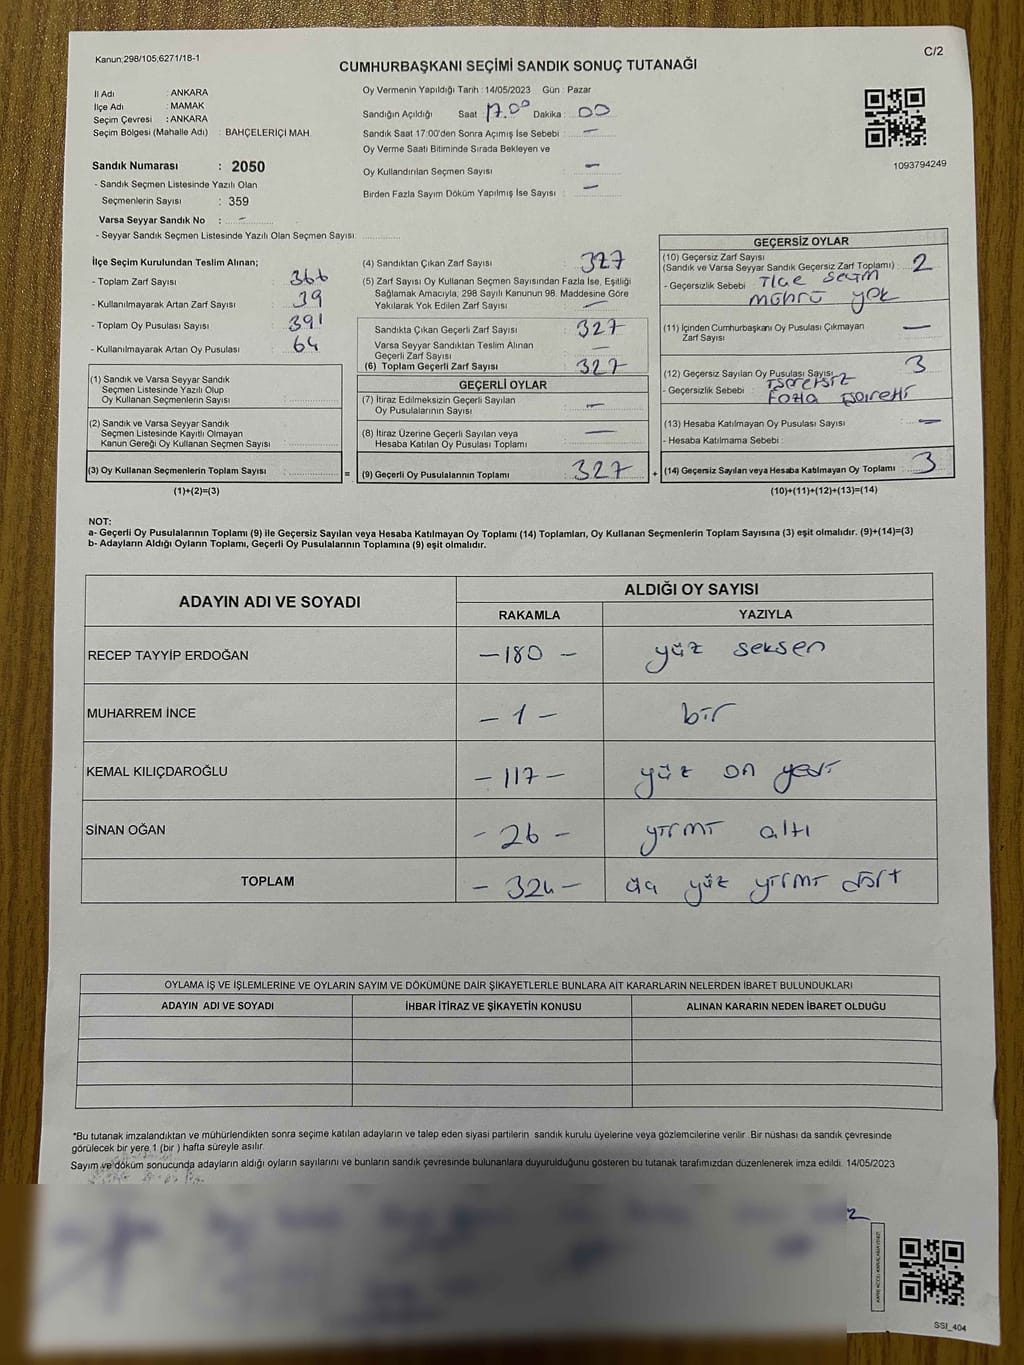 Kanun;298/105,6271/18-1
C/2
CUMHURBAŞKANI SEÇİMİ SANDIK SONUÇ TUTANAĞI
İl Adı : ANKARA
İlçe Adı : MAMAK
Seçim Çevresi : ANKARA
Seçim Bölgesi (Mahalle Adı) : BAHÇELERİÇİ MAH.
Sandık Numarası : 2050
- Sandık Seçmen Listesinde Yazılı Olan
Seçmenlerin Sayısı : 359
Varsa Seyyar Sandık No : -
- Seyyar Sandık Seçmen Listesinde Yazılı Olan Seçmen Sayısı:
Oy Vermenin Yapıldığı Tarih : 14/05/2023 Gün : Pazar
Sandığın Açıldığı Saat 17.00 Dakika : 00
Sandık Saat 17:00'den Sonra Açımış İse Sebebi : —
Oy Verme Saati Bitiminde Sırada Bekleyen ve
Oy Kullandırılan Seçmen Sayısı : —
Birden Fazla Sayım Döküm Yapılmış İse Sayısı : —
1093794249
İlçe Seçim Kurulundan Teslim Alınan;
- Toplam Zarf Sayısı : 366
- Kullanılmayarak Artan Zarf Sayısı : 39
- Toplam Oy Pusulası Sayısı : 391
- Kullanılmayarak Artan Oy Pusulası : 64
(1) Sandık ve Varsa Seyyar Sandık
Seçmen Listesinde Yazılı Olup
Oy Kullanan Seçmenlerin Sayısı :
(2) Sandık ve Varsa Seyyar Sandık
Seçmen Listesinde Kayıtlı Olmayan
Kanun Gereği Oy Kullanan Seçmen Sayısı :
(3) Oy Kullanan Seçmenlerin Toplam Sayısı :
(1)+(2)=(3)
=
(4) Sandıktan Çıkan Zarf Sayısı : 327
(5) Zarf Sayısı Oy Kullanan Seçmen Sayısından Fazla İse, Eşitliği
Sağlamak Amacıyla, 298 Sayılı Kanunun 98. Maddesine Göre
Yakılarak Yok Edilen Zarf Sayısı : —
Sandıkta Çıkan Geçerli Zarf Sayısı : 327
Varsa Seyyar Sandıktan Teslim Alınan
Geçerli Zarf Sayısı : —
(6) Toplam Geçerli Zarf Sayısı : 327
GEÇERLİ OYLAR
(7) İtiraz Edilmeksizin Geçerli Sayılan
Oy Pusulalarının Sayısı : —
(8) İtiraz Üzerine Geçerli Sayılan veya
Hesaba Katılan Oy Pusulası Toplamı : —
(9) Geçerli Oy Pusulalarının Toplamı : 327
+
GEÇERSİZ OYLAR
(10) Geçersiz Zarf Sayısı
(Sandık ve Varsa Seyyar Sandık Geçersiz Zarf Toplamı) : 2
- Geçersizlik Sebebi : İlçe seçim
mührü yok
(11) İçinden Cumhurbaşkanı Oy Pusulası Çıkmayan
Zarf Sayısı : —
(12) Geçersiz Sayılan Oy Pusulası Sayısı : 3
- Geçersizlik Sebebi : işaretsiz
fazla işaretli
(13) Hesaba Katılmayan Oy Pusulası Sayısı : —
- Hesaba Katılmama Sebebi :
(14) Geçersiz Sayılan veya Hesaba Katılmayan Oy Toplamı : 3
(10)+(11)+(12)+(13)=(14)
NOT:
a- Geçerli Oy Pusulalarının Toplamı (9) ile Geçersiz Sayılan veya Hesaba Katılmayan Oy Toplamı (14) Toplamları, Oy Kullanan Seçmenlerin Toplam Sayısına (3) eşit olmalıdır. (9)+(14)=(3)
b- Adayların Aldığı Oyların Toplamı, Geçerli Oy Pusulalarının Toplamına (9) eşit olmalıdır.
ADAYIN ADI VE SOYADI
ALDIĞI OY SAYISI
RAKAMLA YAZIYLA
RECEP TAYYİP ERDOĞAN —180 — yüz seksen
MUHARREM İNCE — 1 — bir
KEMAL KILIÇDAROĞLU — 117 — yüz on yedi
SİNAN OĞAN - 26 - yirmi altı
TOPLAM - 324 - üç yüz yirmi dört
OYLAMA İŞ VE İŞLEMLERİNE VE OYLARIN SAYIM VE DÖKÜMÜNE DAİR ŞİKAYETLERLE BUNLARA AİT KARARLARIN NELERDEN İBARET BULUNDUKLARI
ADAYIN ADI VE SOYADI İHBAR İTİRAZ VE ŞİKAYETİN KONUSU ALINAN KARARIN NEDEN İBARET OLDUĞU
*Bu tutanak imzalandıktan ve mühürlendikten sonra seçime katılan adayların ve talep eden siyasi partilerin sandık kurulu üyelerine veya gözlemcilerine verilir. Bir nüshası da sandık çevresinde
görülecek bir yere 1 (bir ) hafta süreyle asılır.
Sayım ve döküm sonucunda adayların aldığı oyların sayılarını ve bunların sandık çevresinde bulunanlara duyurulduğunu gösteren bu tutanak tarafımızdan düzenlenerek imza edildi. 14/05/2023
SSI_404